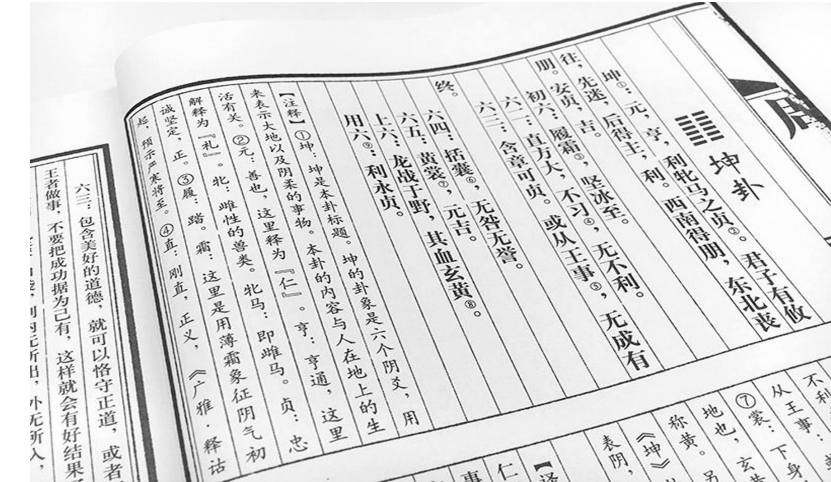 坤卦
坤①：元，亨，利牝马之贞②。君子有攸
往，先迷，后得主，利。西南得朋，东北丧
朋。安贞，吉。
初六：履霜③，坚冰至。
六二：直方大，不习④，无不利。
六三：含章可贞。或从王事⑤，无成有
终。
六四：括囊⑥，无咎无誉。
六五：黄裳⑦，元吉。
上六：龙战于野，其血玄黄⑧。
用六⑨：利永贞。
【注释】①坤：坤是本卦标题。坤的卦象是六个阴爻，用
来表示大地以及阴柔的事物。本卦的内容与人在地上的生
活有关。②元：善也，这里释为『仁』。亨：亨通，这里
解释为『礼』。牝：雌性的兽类。牝马：即雌马。贞：忠
诚坚定，正。③履：踏。霜：这里是用薄霜象征阴气初
起，预示严寒将至。④直：刚直，正义，《广雅·释诂
不利
从王事：
⑦裳：下身
地也，玄
称黄。另
《坤》
表阴，
【译
仁
事
六三：包含美好的道德，就可以恪守正道，或者
王者做事，不要把成功据为己有，这样就会有好结果
外无所入，